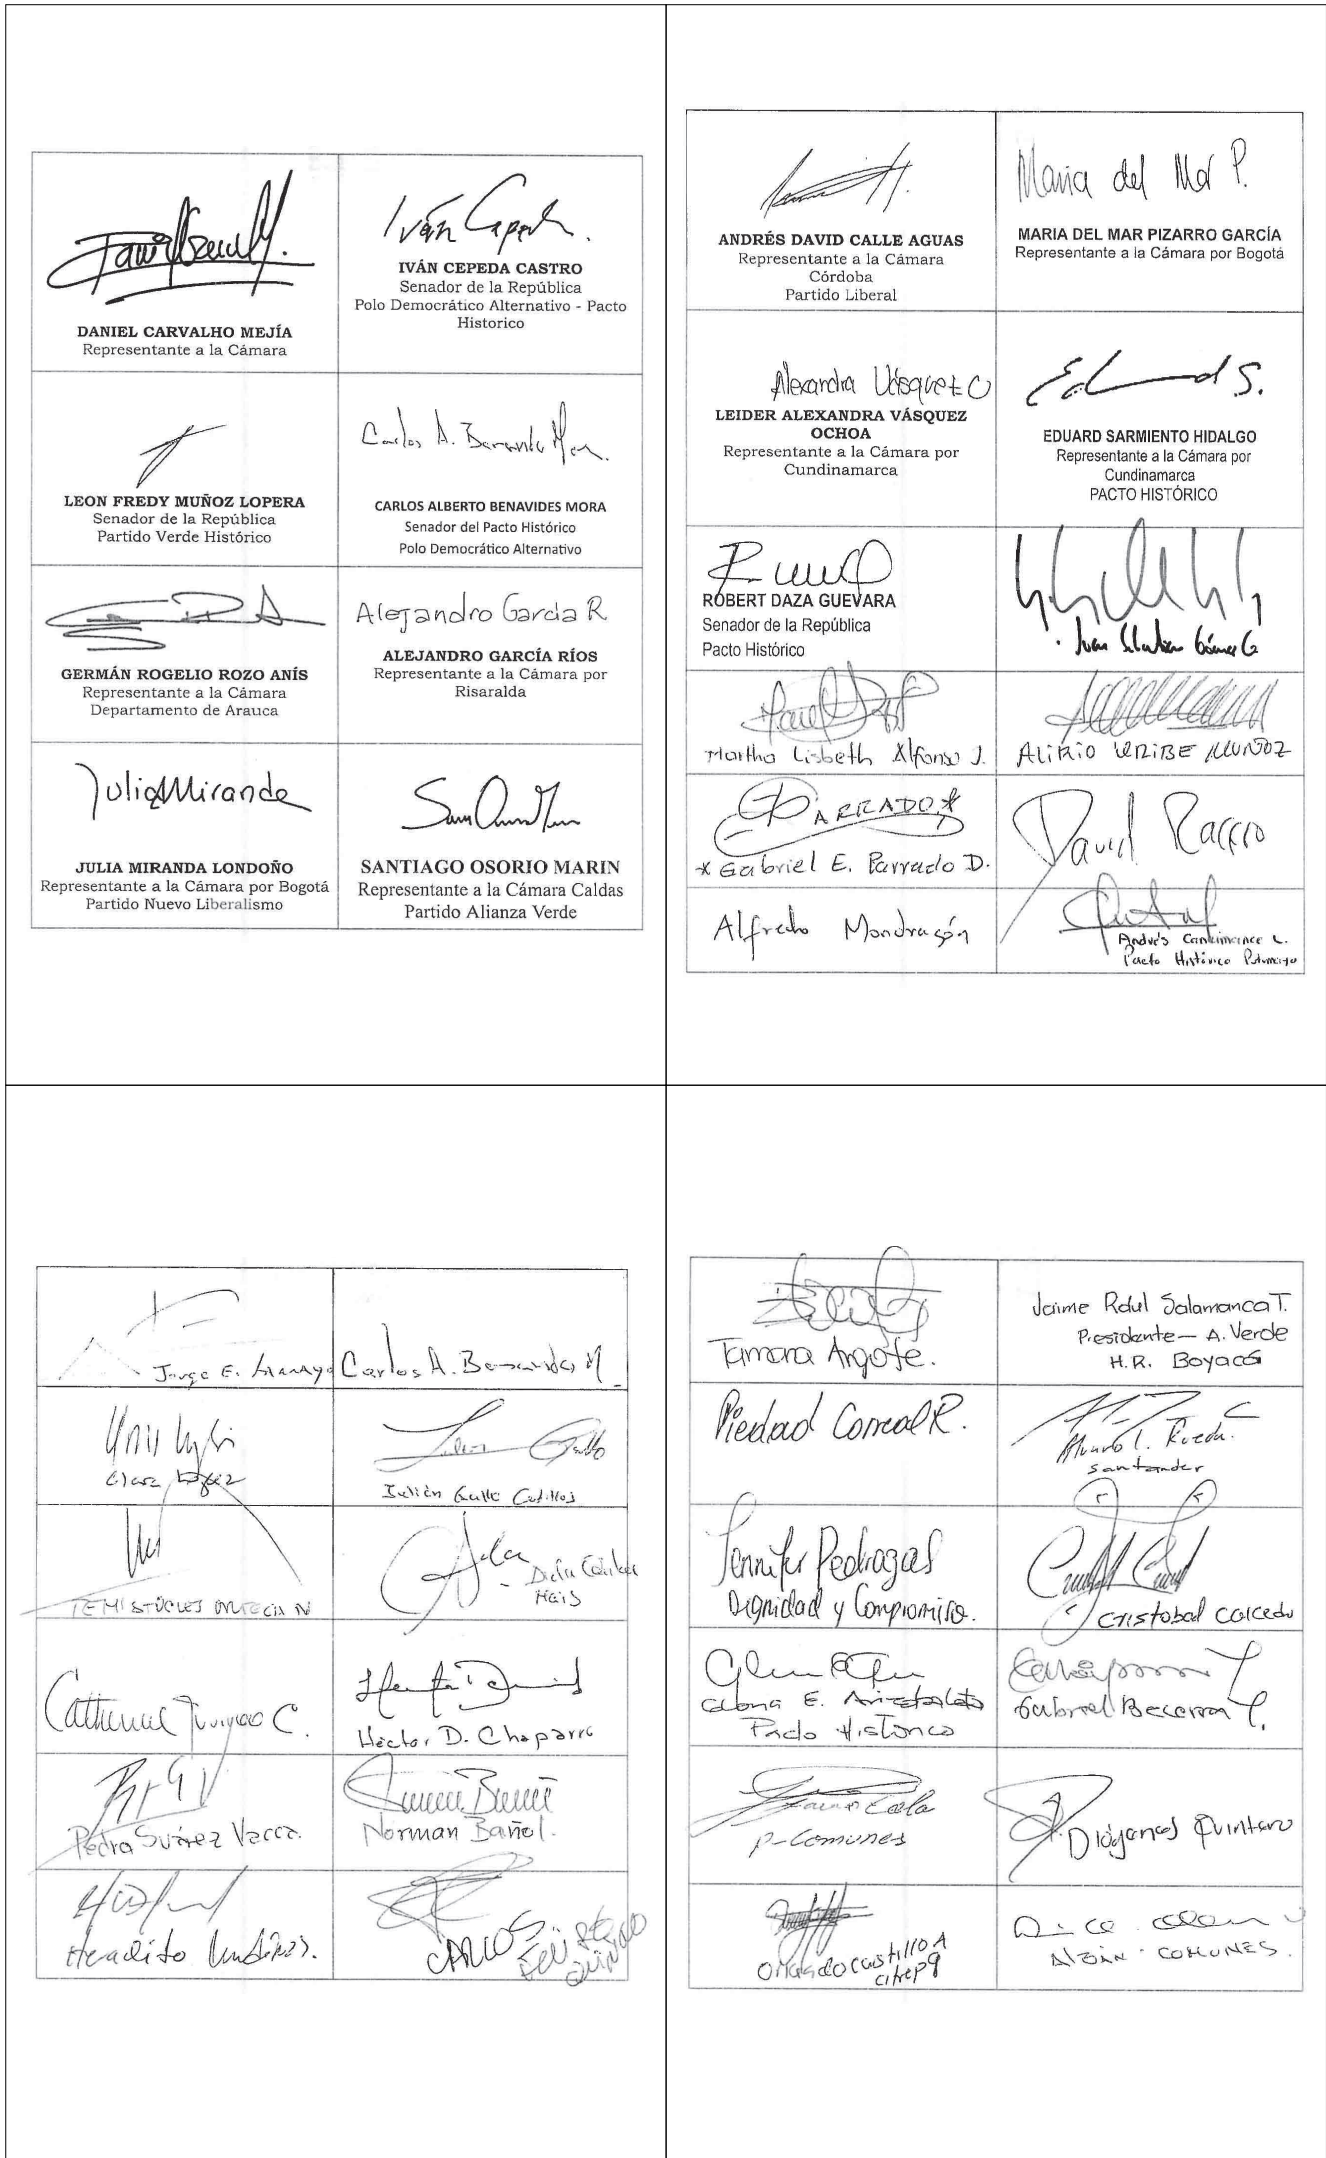 DANIEL CARVALHO MEJÍA
Representante a la Cámara
Iván Cepeda
IVÁN CEPEDA CASTRO
Senador de la República
Polo Democrático Alternativo - Pacto
Historico
LEON FREDY MUÑOZ LOPERA
Senador de la República
Partido Verde Histórico
Carlos A. Benavides Mora
CARLOS ALBERTO BENAVIDES MORA
Senador del Pacto Histórico
Polo Democrático Alternativo
GERMÁN ROGELIO ROZO ANÍS
Representante a la Cámara
Departamento de Arauca
Alejandro García R
ALEJANDRO GARCÍA RÍOS
Representante a la Cámara por
Risaralda
Julia Miranda
JULIA MIRANDA LONDOÑO
Representante a la Cámara por Bogotá
Partido Nuevo Liberalismo
SANTIAGO OSORIO MARIN
Representante a la Cámara Caldas
Partido Alianza Verde
ANDRÉS DAVID CALLE AGUAS
Representante a la Cámara
Córdoba
Partido Liberal
Maria del Mar P.
MARIA DEL MAR PIZARRO GARCÍA
Representante a la Cámara por Bogotá
Alexandra Vásquez O
LEIDER ALEXANDRA VÁSQUEZ
OCHOA
Representante a la Cámara por
Cundinamarca
Eduard S.
EDUARD SARMIENTO HIDALGO
Representante a la Cámara por
Cundinamarca
PACTO HISTÓRICO
ROBERT DAZA GUEVARA
Senador de la República
Pacto Histórico
Juan Sebastian Gómez G
Martha Lisbeth Alfonso J.
ALIRIO URIBE MUÑOZ
PARRADO
* Gabriel E. Parrado D.
David Racero
Alfredo Mondragón
Andrés Cancimance L.
Pacto Histórico Putumayo
Jorge E.
Carlos A. Benavides M
Clara López
Julián Gallo Cubillos
TEMISTOCLES ORTEGA N
Aida
Mais
Catherine Juvinao C.
Héctor D. Chaparro
Pedro Suárez Vacca.
Norman Bañol.
Heraclito
CARLOS
QUINDIO
Tamara Argote.
Jaime Raul Salamanca T.
Presidente - A. Verde
H.R. Boyacá
Piedad Correal R.
Alvaro L. Rueda.
Santander
Jennifer Pedrazas
Dignidad y Compromiso.
Cristobal Caicedo
E. Arizabaleta
Pacto Histórico
Gabriel Becerra Y.
P-Comunes
Diógenes Quintero
Orlando Castillo A
citrep 9
Albán - COMUNES.